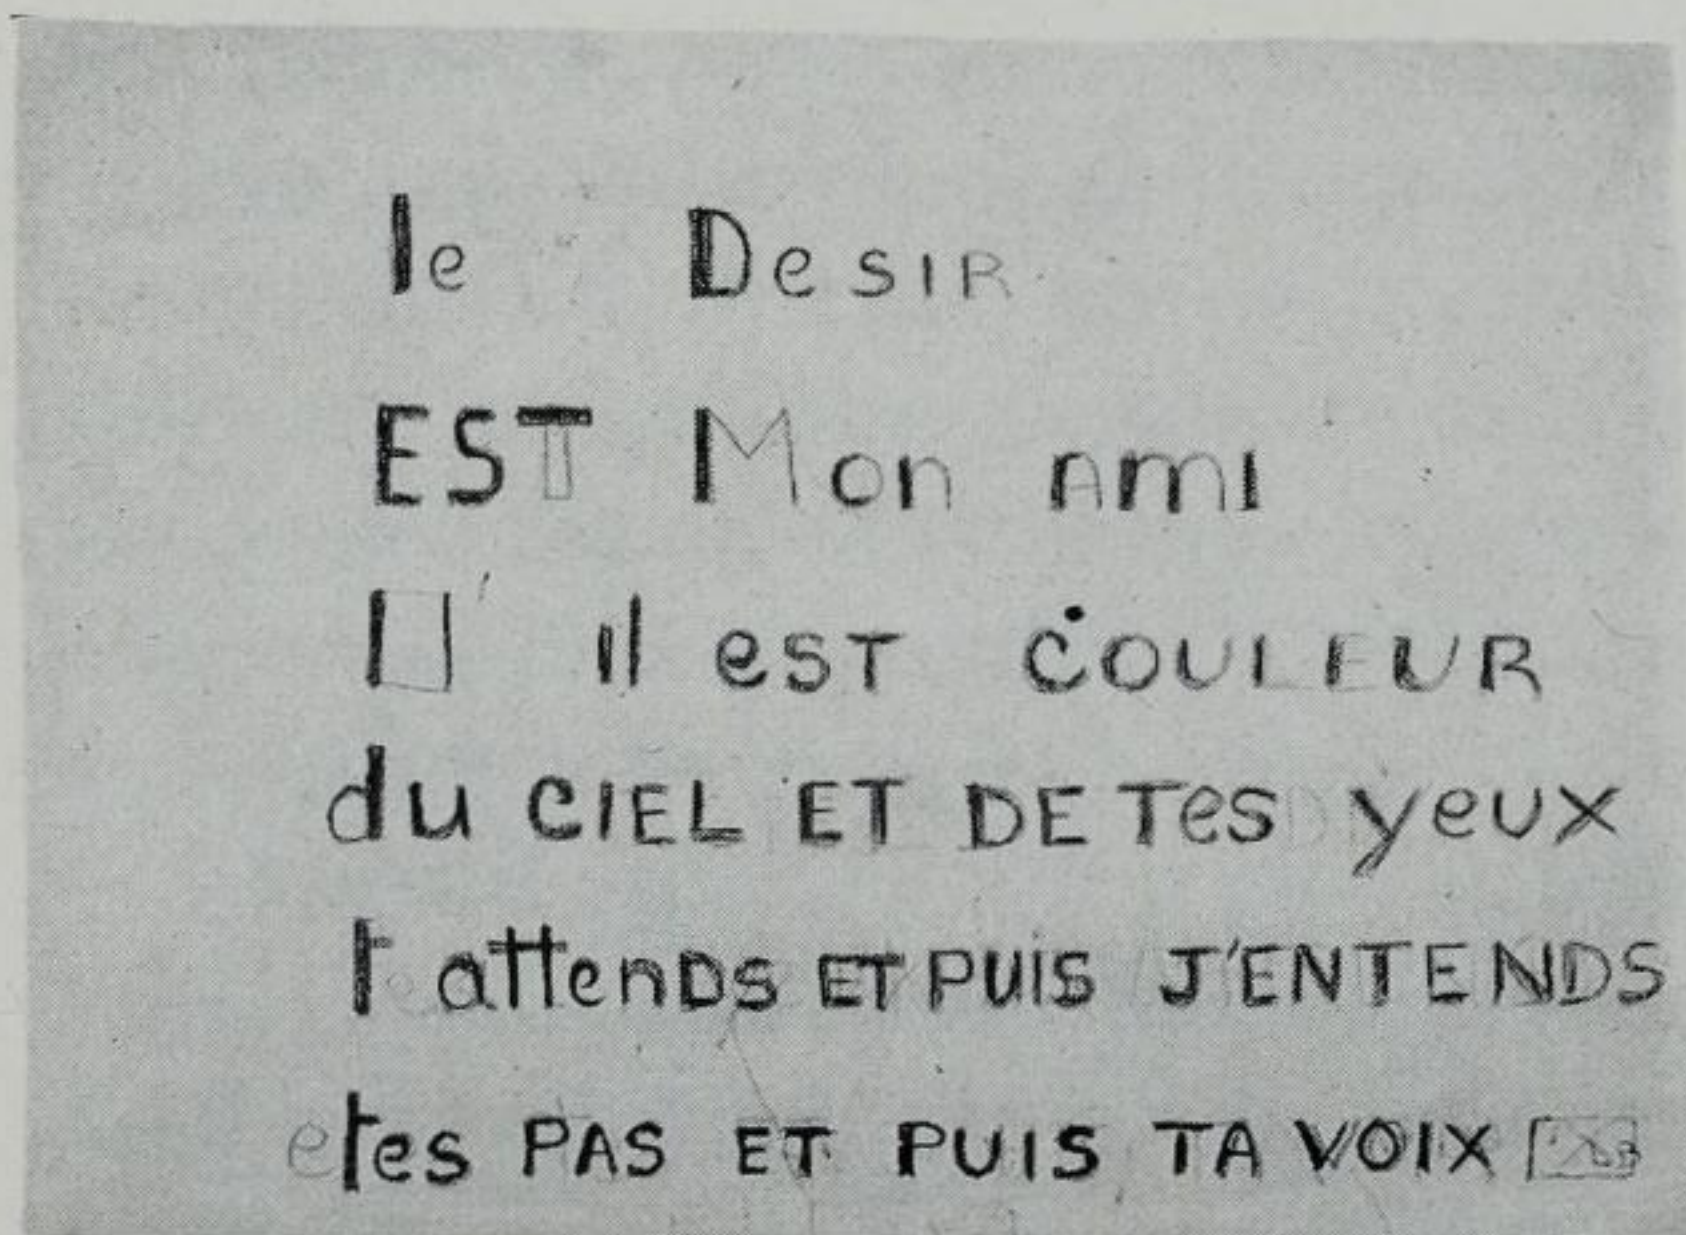 le DesIR
EST Mon Ami
Il esT COULEUR
du CIEL ET DE Tes yeux
t attenDs ET PUIS J'ENTENDS
etes PAS ET PUIS TA VOIX